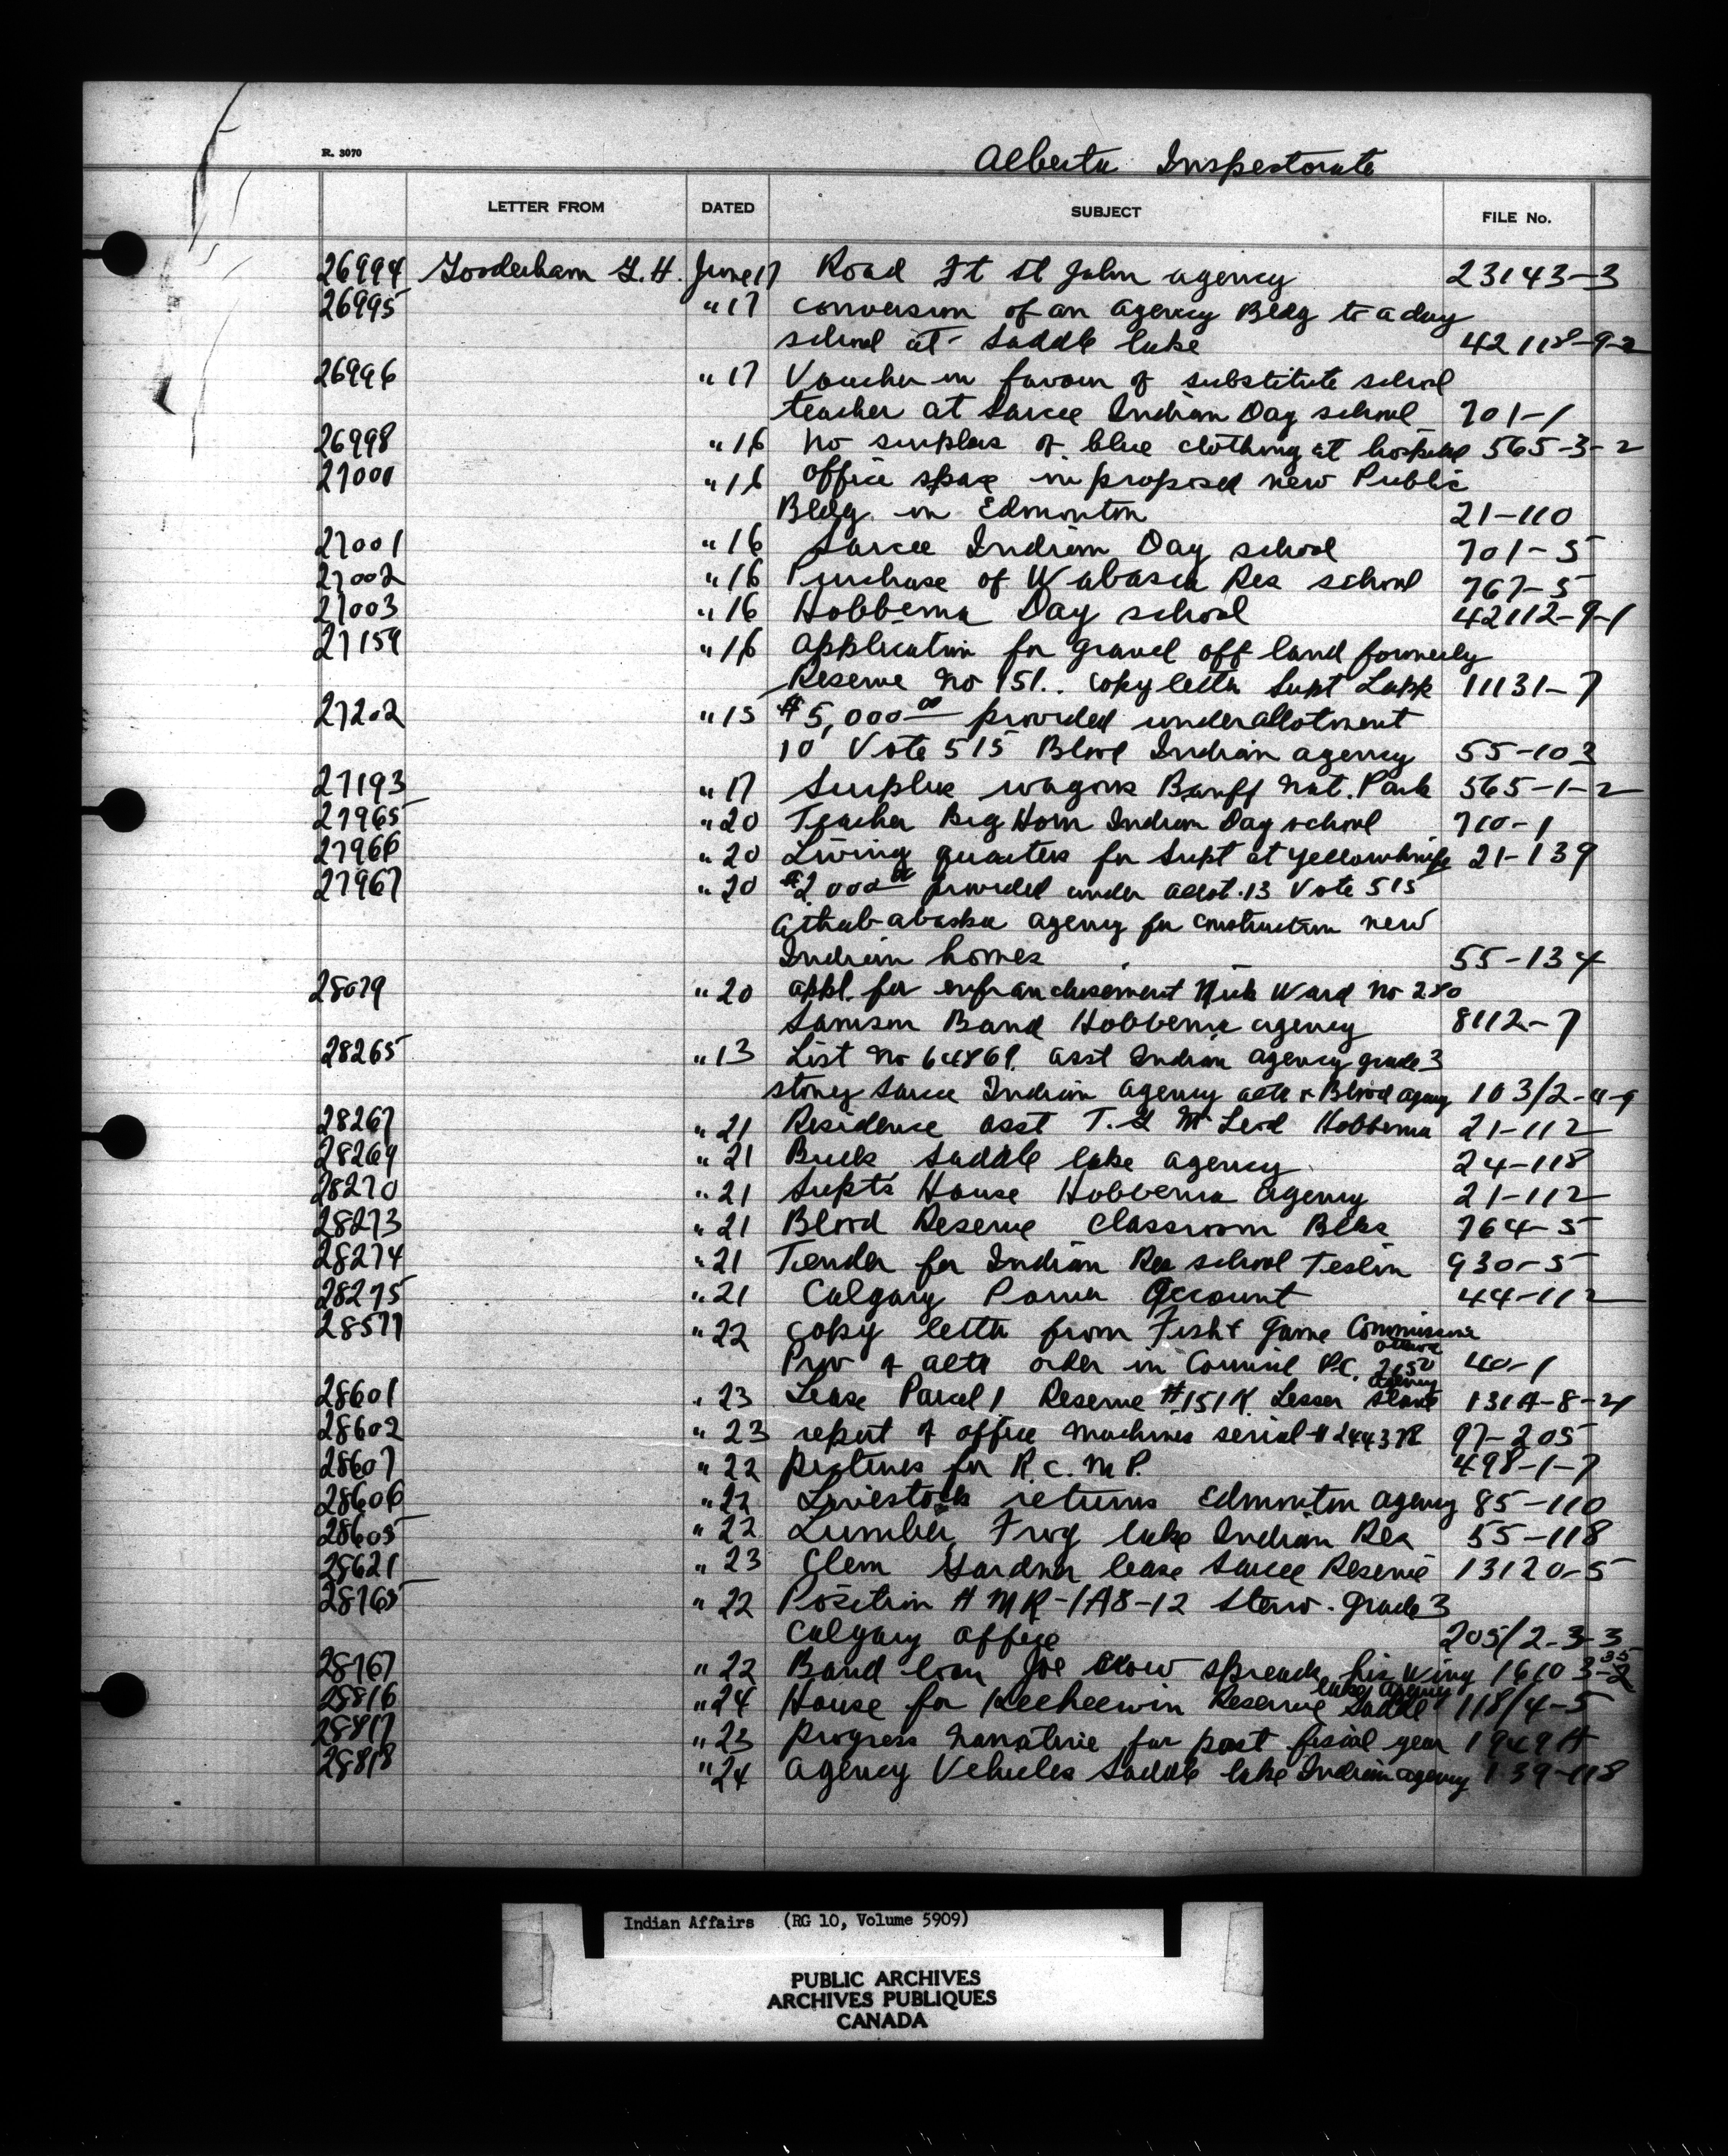 R. 3070
Alberta Inspectorate
LETTER FROM DATED SUBJECT FILE No.
26994 Gooderham G.H. June 17 Road Ft St John agency 23143-3
26995 " 17 conversion of an agency Bldg to a day
school at Saddle lake 42118-9-2
26996 " 17 Voucher in favour of substitute school
teacher at Sarcee Indian Day school 701-1
26998 " 16 no surplus of blue clothing at hospital 565-3-2
27000 " 16 office space in proposed new Public
Bldg. in Edmonton 21-110
27001 " 16 Sarcee Indian Day school 701-5
27002 " 16 Purchase of Wabasca Res school 767-5
27003 " 16 Hobbema Day school 42112-9-1
27159 " 16 application for gravel off land formerly
Reserve no 151.. copy letter Supt Lapp 11131-7
27202 " 15 $5,000 00 provided under allotment
10 Vote 515 Blood Indian agency 55-103
27193 " 17 Surplus wagons Banff Nat. Park 565-1-2
27965 " 20 Teacher Big Horn Indian Day school 710-1
27966 " 20 Living quarters for Supt at yellowknife 21-139
27967 " 20 $2,000 00 provided under allot.13 Vote 515
Athab-abaska agency for construction new
Indian homes 55-134
28079 " 20 appl. for enfranchisement Nick Ward no 280
Samson Band Hobbema agency 8112-7
28265 " 13 List no 64869. asst Indian agency grade 3
stoney Sarcee Indian agency alta & Blood agency 103/2-4-9
28267 " 21 Residence asst T. G McLeod Hobbema 21-112
28269 " 21 Buick Saddle lake agency 24-118
28270 " 21 Supt's House Hobbema agency 21-112
28273 " 21 Blood Reserve Classroom Blks 764-5
28274 " 21 Tender for Indian Res school Teslin 930-5
28275 " 21 Calgary Power Account 44-112
28577 " 22 copy letter from Fish & Game Commissioner
Prov of alta order in Council P.C. 2150 40-1
agency
28601 " 23 Lease Parcel 1 Reserve #151K Lesser Slave 131A-8-21
28602 " 23 report of office machines serial # 244372 97-205
28607 " 22 pictures for R.C.M.P. 498-1-7
28606 " 22 Livestock returns Edmonton agency 85-110
28605 " 22 Lumber, Frog lake Indian Res 55-118
28621 " 23 Clem Gardner lease Sarcee Reserve 13120-5
28765 " 22 Position # MR-IA8-12 Steno. grade 3
Calgary office 205/2-3-3
28767 " 22 Band loan Joe Crow spreads his wing 16103-2
35
lake agency
28816 " 24 House for Keeheewin Reserve Saddle 118/4-5
28817 " 23 progress narrative for past fiscal year 1949A
28818 " 24 agency Vehicles Saddle lake Indian agency 139-118
Indian Affairs (RG 10, Volume 5909)
PUBLIC ARCHIVES
ARCHIVES PUBLIQUES
CANADA